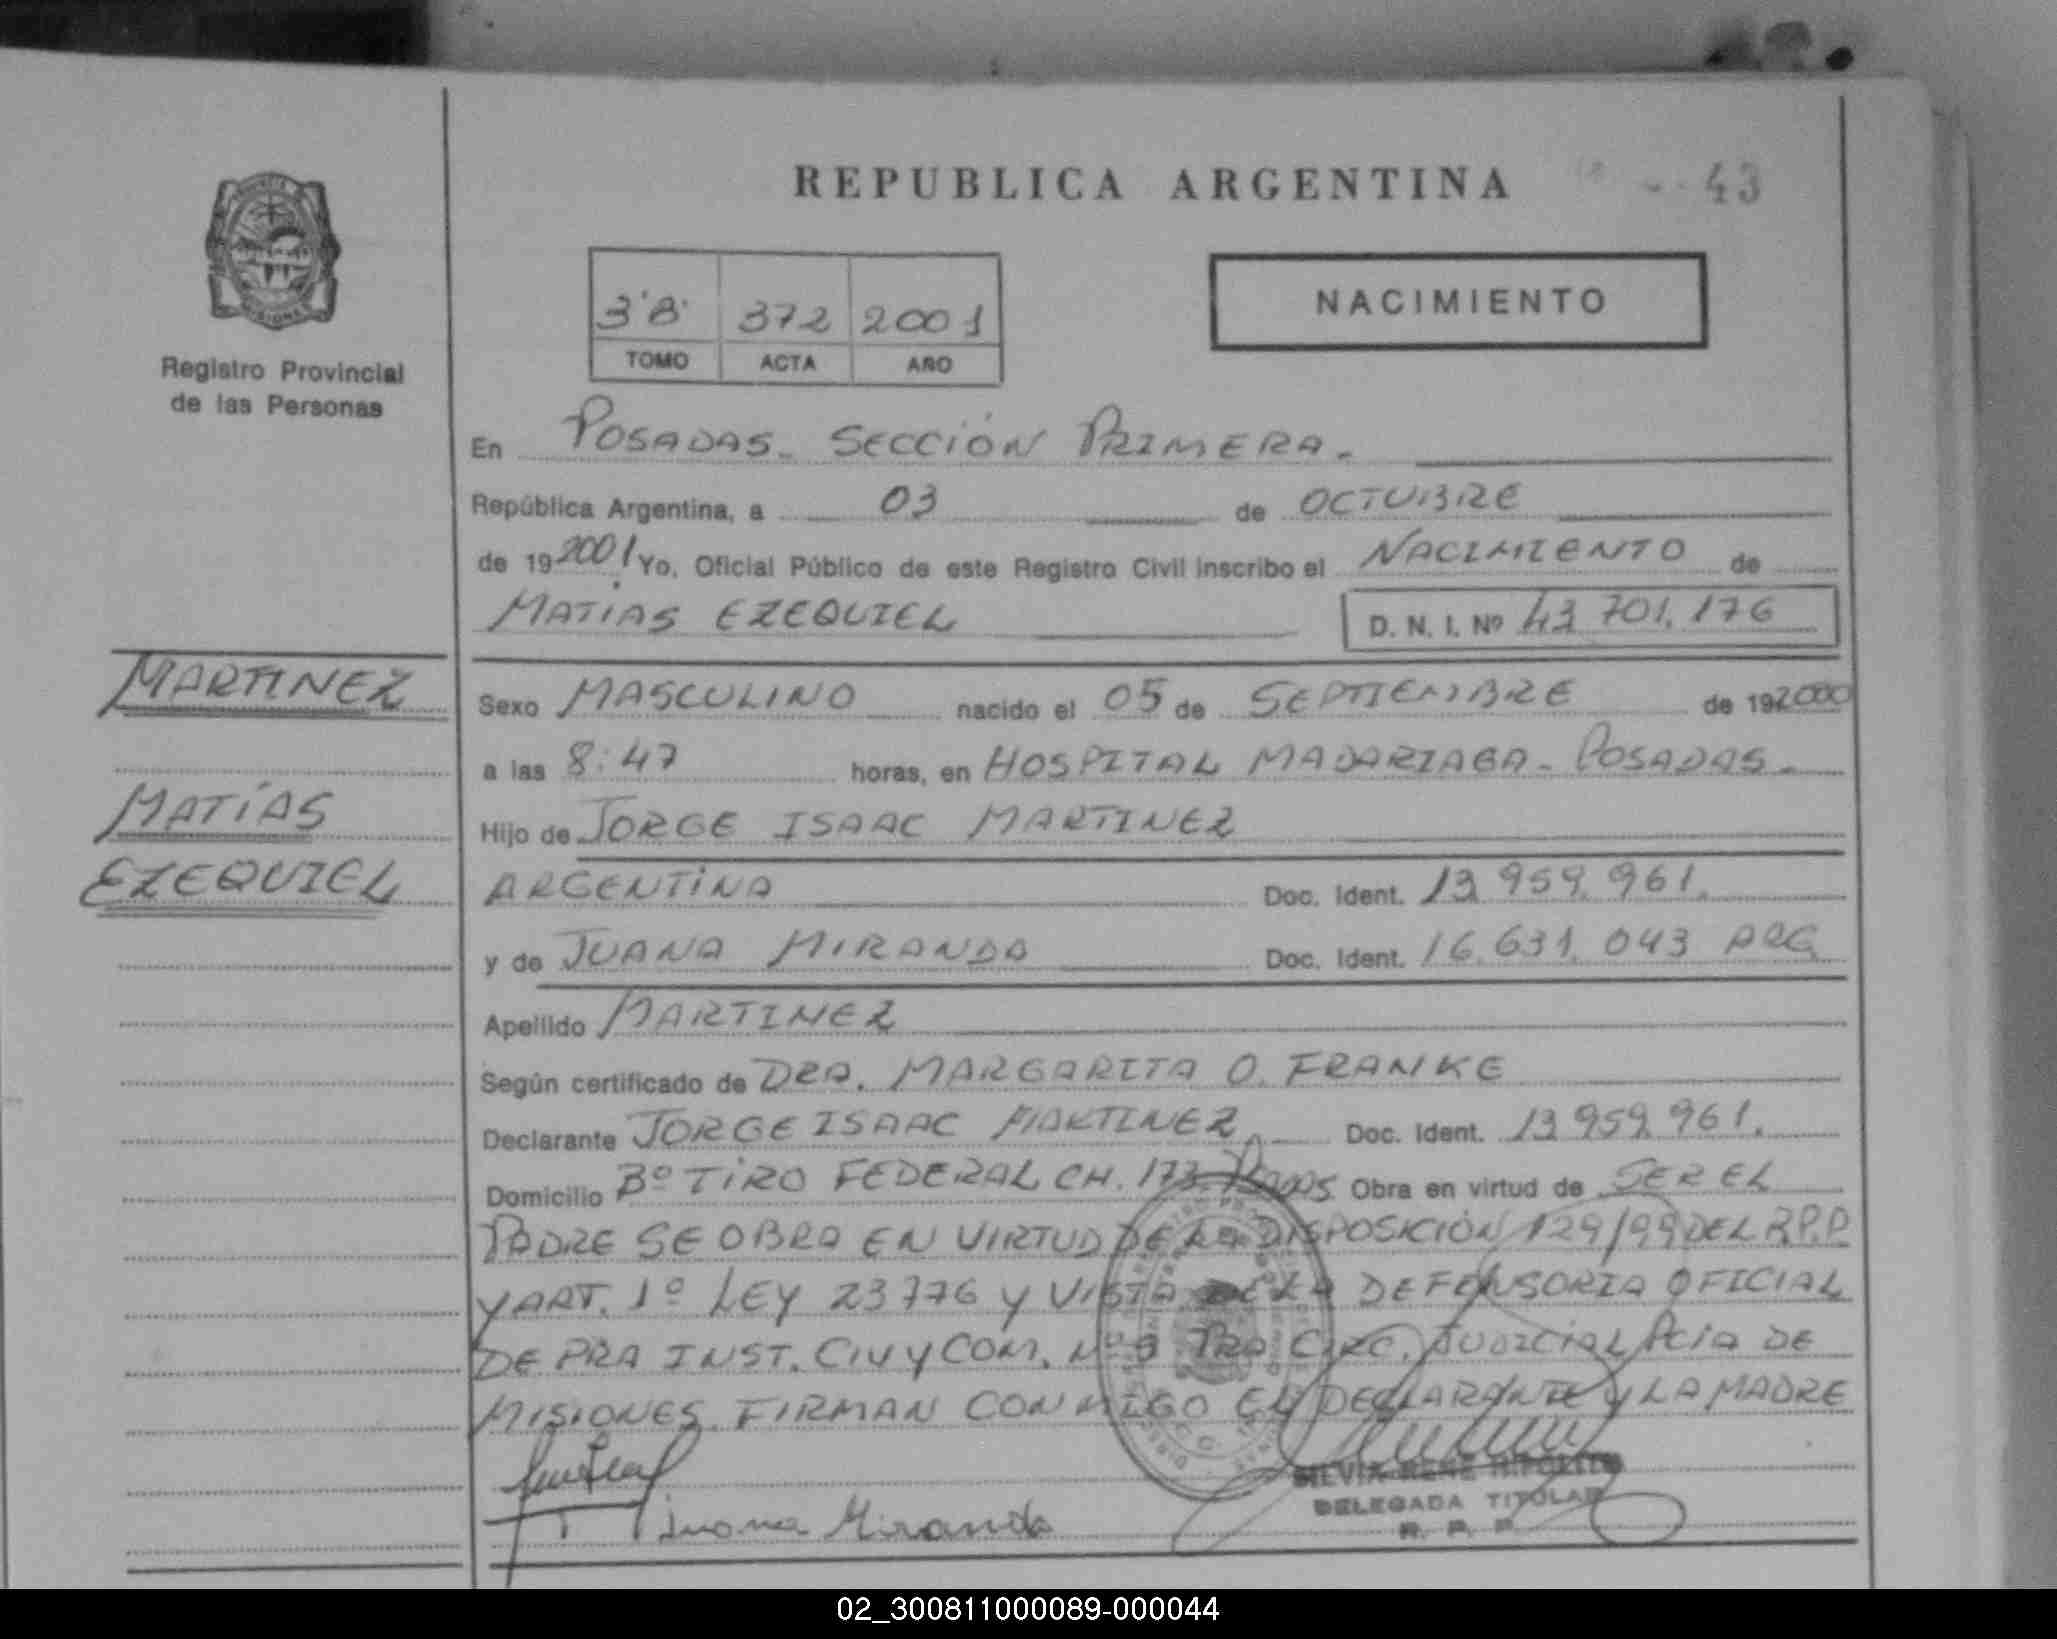 REPUBLICA ARGENTINA
43
3 B 372 2001
TOMO ACTA AÑO
NACIMIENTO
Registro Provincial
de las Personas
En POSADAS. SECCIÓN PRIMERA.
República Argentina, a 03 de OCTUBRE
de 192001 Yo, Oficial Público de este Registro Civil inscribo el NACIMIENTO de
MATÍAS EZEQUIEL D. N. I. Nº 43 701.176
MARTINEZ
MATÍAS
EZEQUIEL
Sexo MASCULINO nacido el 05 de SEPTIEMBRE de 192000
a las 8:47 horas, en HOSPITAL MADARIAGA - POSADAS -
Hijo de JORGE ISAAC MARTINEZ
ARGENTINA Doc. Ident. 13.959.961.
y de JUANA MIRANDA Doc. Ident. 16.631.043 ARG
Apellido MARTINEZ
Según certificado de DRA. MARGARITA O. FRANKE
Declarante JORGE ISAAC MARTINEZ Doc. Ident. 13.959.961.
Domicilio Bº TIRO FEDERAL CH. 173 Obra en virtud de SER EL
PADRE SE OBRA EN VIRTUD DE LA DISPOSICIÓN 129/99 DEL R.P.P.
Y ART. 1º LEY 23776 Y VISTA DE LA DEFENSORIA OFICIAL
DE PRA INST. CIV Y COM. Nº CIRC. JUDICIAL PCIA DE
MISIONES. FIRMAN CONMIGO EL DECLARANTE Y LA MADRE
Juana Miranda
SILVIA RENE HIPOLITO
DELEGADA TITULAR
R. P. P.
02_300811000089-000044